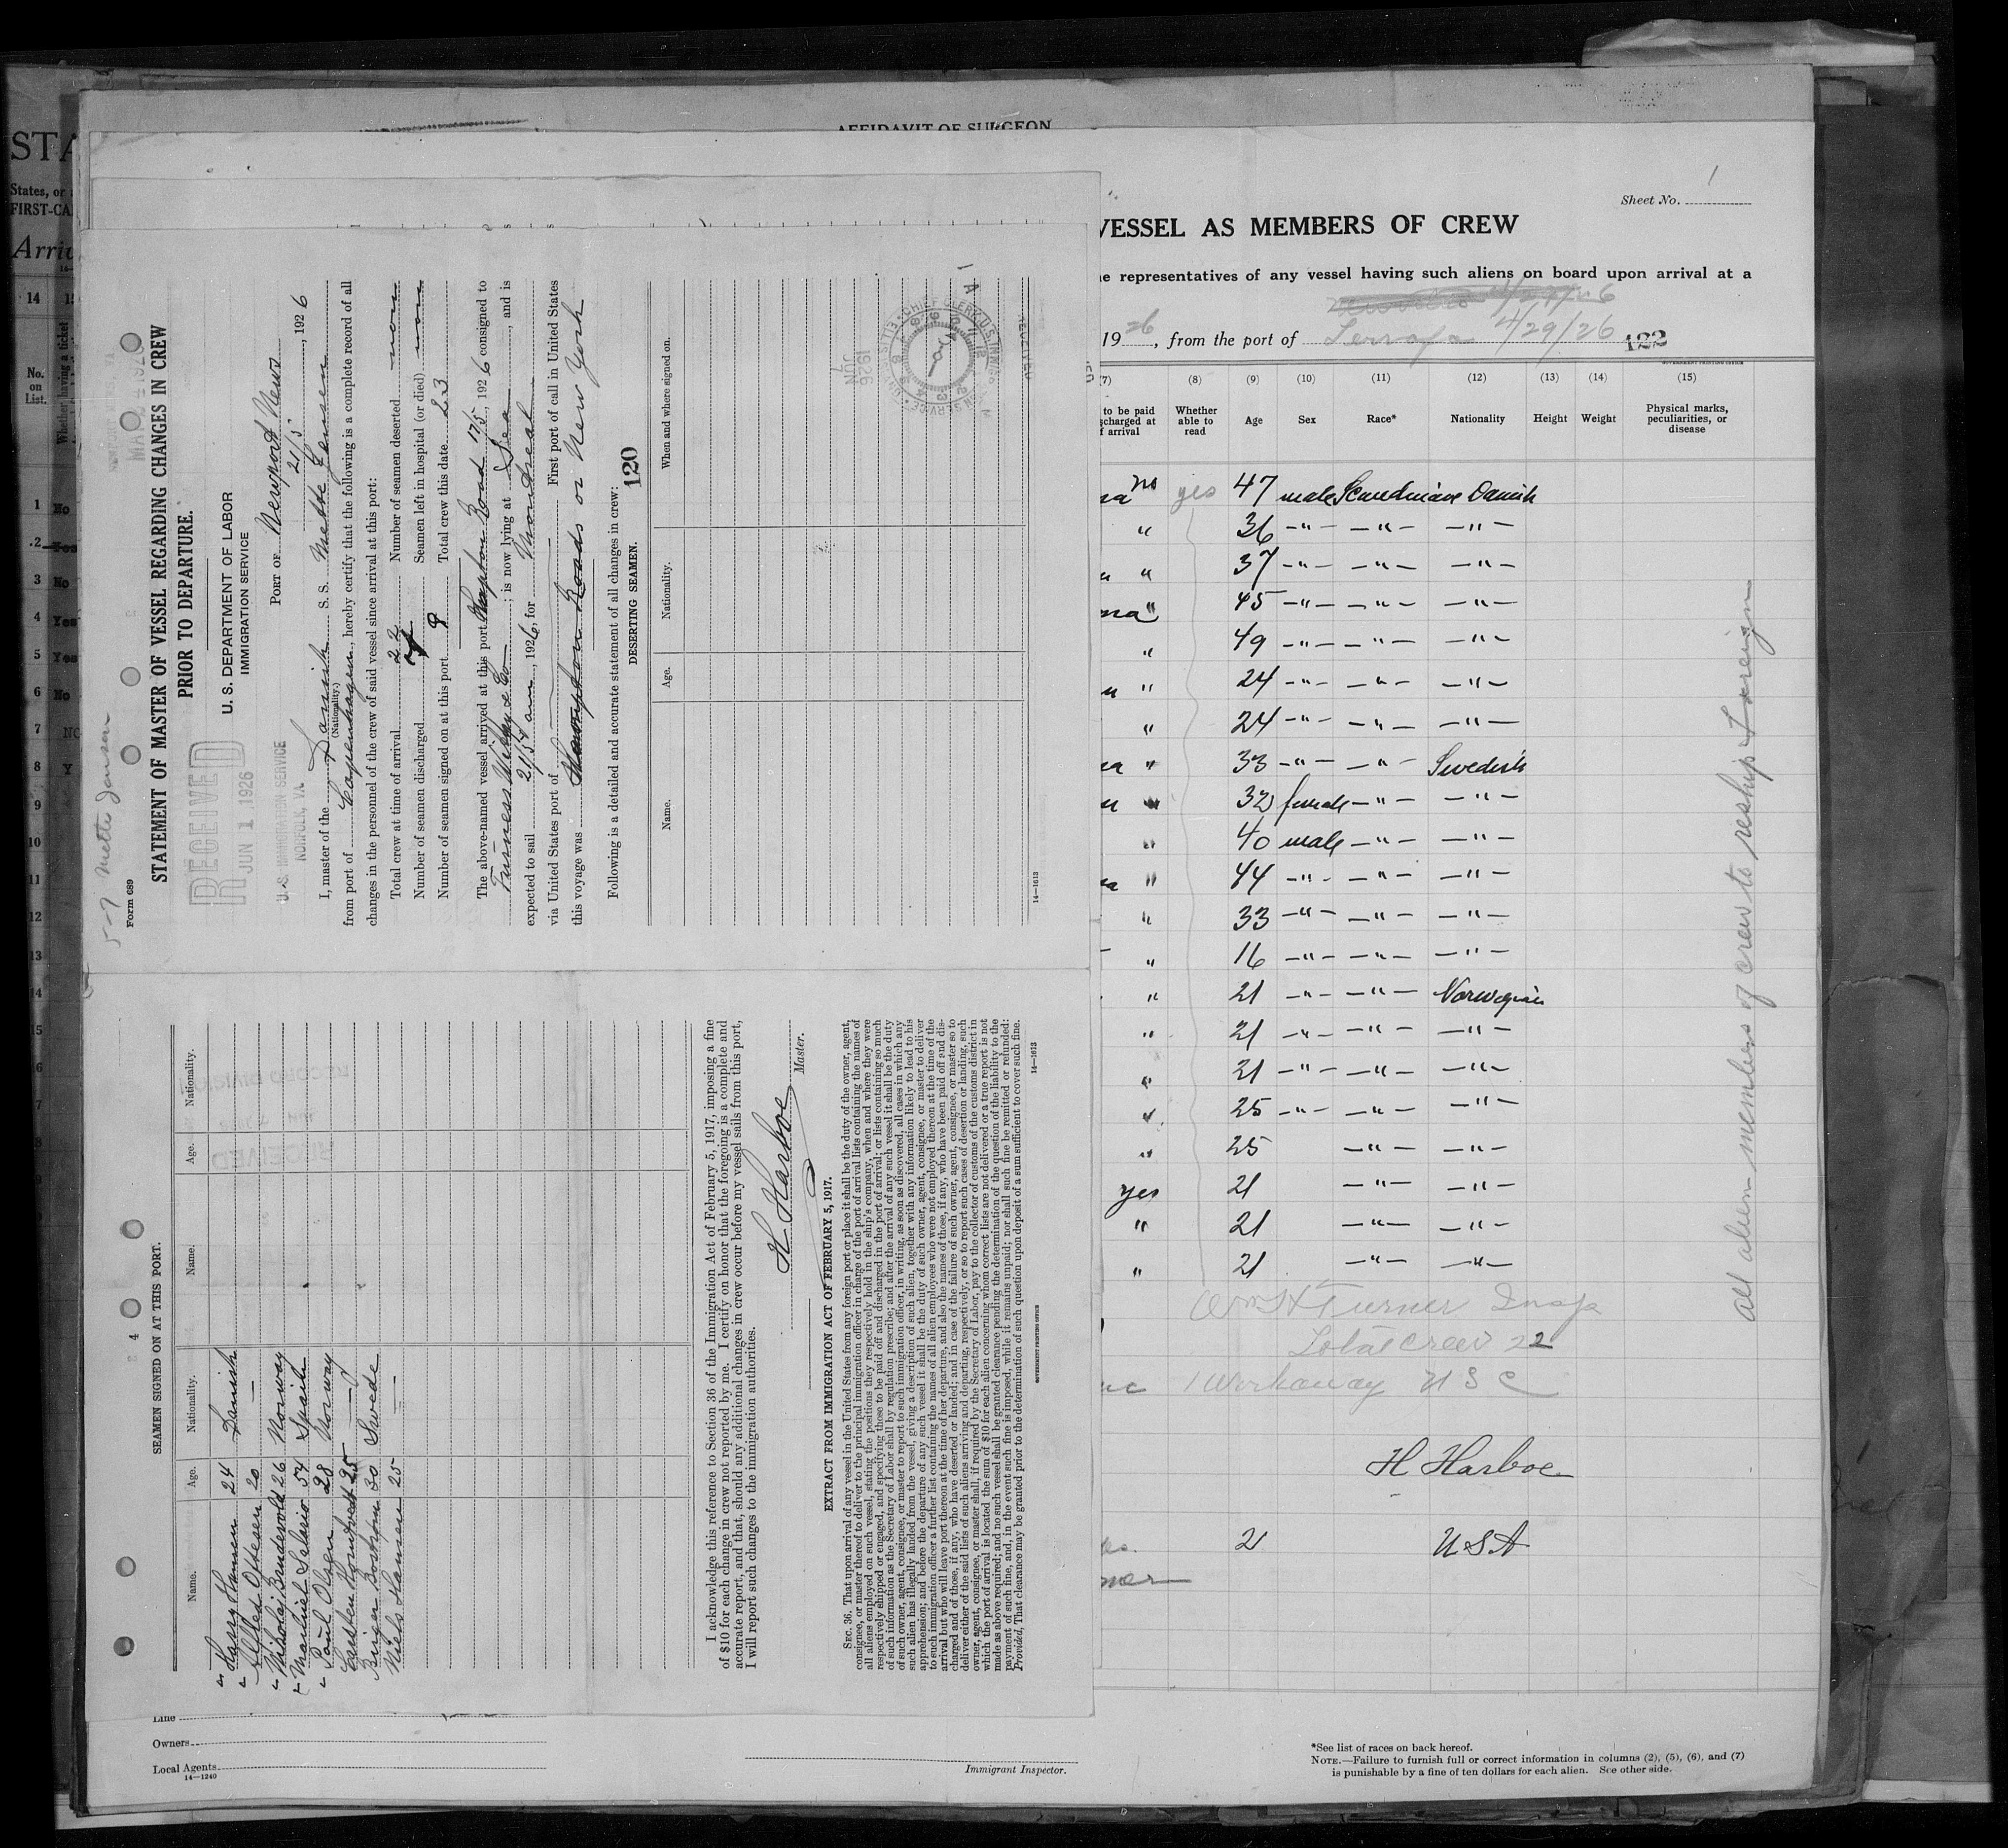 5-7 Mette Jensen
Form 689
STATEMENT OF MASTER OF VESSEL REGARDING CHANGES IN CREW
PRIOR TO DEPARTURE.
U. S. DEPARTMENT OF LABOR
IMMIGRATION SERVICE
RECEIVED
JUN 1 1926
U. S. IMMIGRATION SERVICE
NORFOLK, VA.
PORT OF Newport News
21/5, 1926
I, master of the Danish S. S. Mette Jensen
(Nationality.)
from port of Copenhagen, hereby certify that the following is a complete record of all
changes in the personnel of the crew of said vessel since arrival at this port:
Total crew at time of arrival 22 Number of seamen deserted non
Number of seamen discharged 7 Seamen left in hospital (or died) non
Number of seamen signed on at this port 8 Total crew this date 23
The above-named vessel arrived at this port Hampton Road 17/5, 1926 consigned to
Furness Withy & Co; is now lying at Sea, and is
expected to sail 21/5 4 am, 1926, for Montreal
via United States port of — First port of call in United States
this voyage was Hampton Roads or New York
Following is a detailed and accurate statement of all changes in crew:
120
DESERTING SEAMEN.
Name. Age. Nationality. When and where signed on.
CHIEF CLERK, U.S. IMMIGRATION SERVICE
1926
JUN
14—1613
SEAMEN SIGNED ON AT THIS PORT.
Name. Age. Nationality. Name. Age. Nationality.
Harry Hansen 24 Danish
Alfred Ottesen 20 —
Mikolaj Bundevold 26 Norway
Manuel Selasio 54 Spain
Paul Olsen 28 Norway
Carsten Homtvedt 25 —
Birger Bostrom 30 Swede
Niels Hansen 25 —
I acknowledge this reference to Section 36 of the Immigration Act of February 5, 1917, imposing a fine
of $10 for each change in crew not reported by me. I certify on honor that the foregoing is a complete and
accurate report, and that, should any additional changes in crew occur before my vessel sails from this port,
I will report such changes to the immigration authorities.
H Harboe
Master.
EXTRACT FROM IMMIGRATION ACT OF FEBRUARY 5, 1917.
SEC. 36. That upon arrival of any vessel in the United States from any foreign port or place it shall be the duty of the owner, agent,
consignee, or master thereof to deliver to the principal immigration officer in charge of the port of arrival lists containing the names of
all aliens employed on such vessel, stating the positions they respectively held in the ship's company, when and where they were
respectively shipped or engaged, and specifying those to be paid off and discharged in the port of arrival; or lists containing so much
of such information as the Secretary of Labor shall by regulation prescribe; and after the arrival of any such vessel it shall be the duty
of such owner, agent, consignee, or master to report to such immigration officer, in writing, as soon as discovered, all cases in which any
such alien has illegally landed from the vessel, giving a description of such alien, together with any information likely to lead to his
apprehension; and before the departure of any such vessel it shall be the duty of such owner, agent, consignee, or master to deliver
to such immigration officer a further list containing the names of all alien employees who were not employed thereon at the time of the
arrival but who will leave port thereon at the time of her departure, and also the names of those, if any, who have been paid off and dis-
charged and of those, if any, who have deserted or landed; and in case of the failure of such owner, agent, consignee, or master so to
deliver either of the said lists of such aliens arriving and departing, respectively, or so to report such cases of desertion or landing, such
owner, agent, consignee, or master shall, if required by the Secretary of Labor, pay to the collector of customs of the customs district in
which the port of arrival is located the sum of $10 for each alien concerning whom correct lists are not delivered or a true report is not
made as above required; and no such vessel shall be granted clearance pending the determination of the question of the liability to the
payment of such fine, and, in the event such fine is imposed, while it remains unpaid; nor shall such fine be remitted or refunded:
Provided, That clearance may be granted prior to the determination of such question upon deposit of a sum sufficient to cover such fine.
14—1613
GOVERNMENT PRINTING OFFICE
AFFIDAVIT OF SURGEON
Sheet No. 1
VESSEL AS MEMBERS OF CREW
representatives of any vessel having such aliens on board upon arrival at a
4/29/26
1926, from the port of 4/29/26 122
GOVERNMENT PRINTING OFFICE
(7) (8) (9) (10) (11) (12) (13) (14) (15)
to be paid Whether able to read Age Sex Race* Nationality Height Weight Physical marks, peculiarities, or disease
no yes 47 male Scandinavn Danish
" 36 —"— —"— —"—
" 37 —"— —"— —"—
" 45 —"— —"— —"—
" 49 —"— —"— —"—
" 24 —"— —"— —"—
" 24 —"— —"— —"—
" 33 —"— —"— Swedish
" 32 female —"— —"—
" 40 male —"— —"—
" 44 —"— —"— —"—
" 33 —"— —"— —"—
" 16 —"— —"— —"—
" 21 —"— —"— Norwegian
" 21 —"— —"— —"—
" 21 —"— —"— —"—
" 25 —"— —"— —"—
" 25 —"— —"—
yes 21 —"— —"—
" 21 —"— —"—
" 21 —"— —"—
Wm H Turner Insp
Total Crew 22
1 Workaway U S C
H Harboe
21 USA
all alien members of crew to reship foreign
*See list of races on back hereof.
NOTE.—Failure to furnish full or correct information in columns (2), (5), (6), and (7)
is punishable by a fine of ten dollars for each alien. See other side.
Line
Owners
Local Agents
14—1240
Immigrant Inspector.
STA
States, or
FIRST-CA
Arriv
14
No.
on
List.
Whether having a ticket
1 No
2 Yes
3 No
4 Yes
5 Yes
6 No
7 NO
8 Y
9
10
11
12
13
14
15